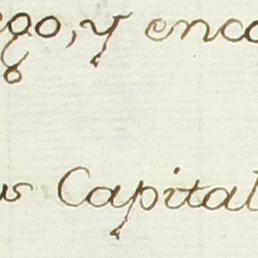 ego, y enco
us Capital